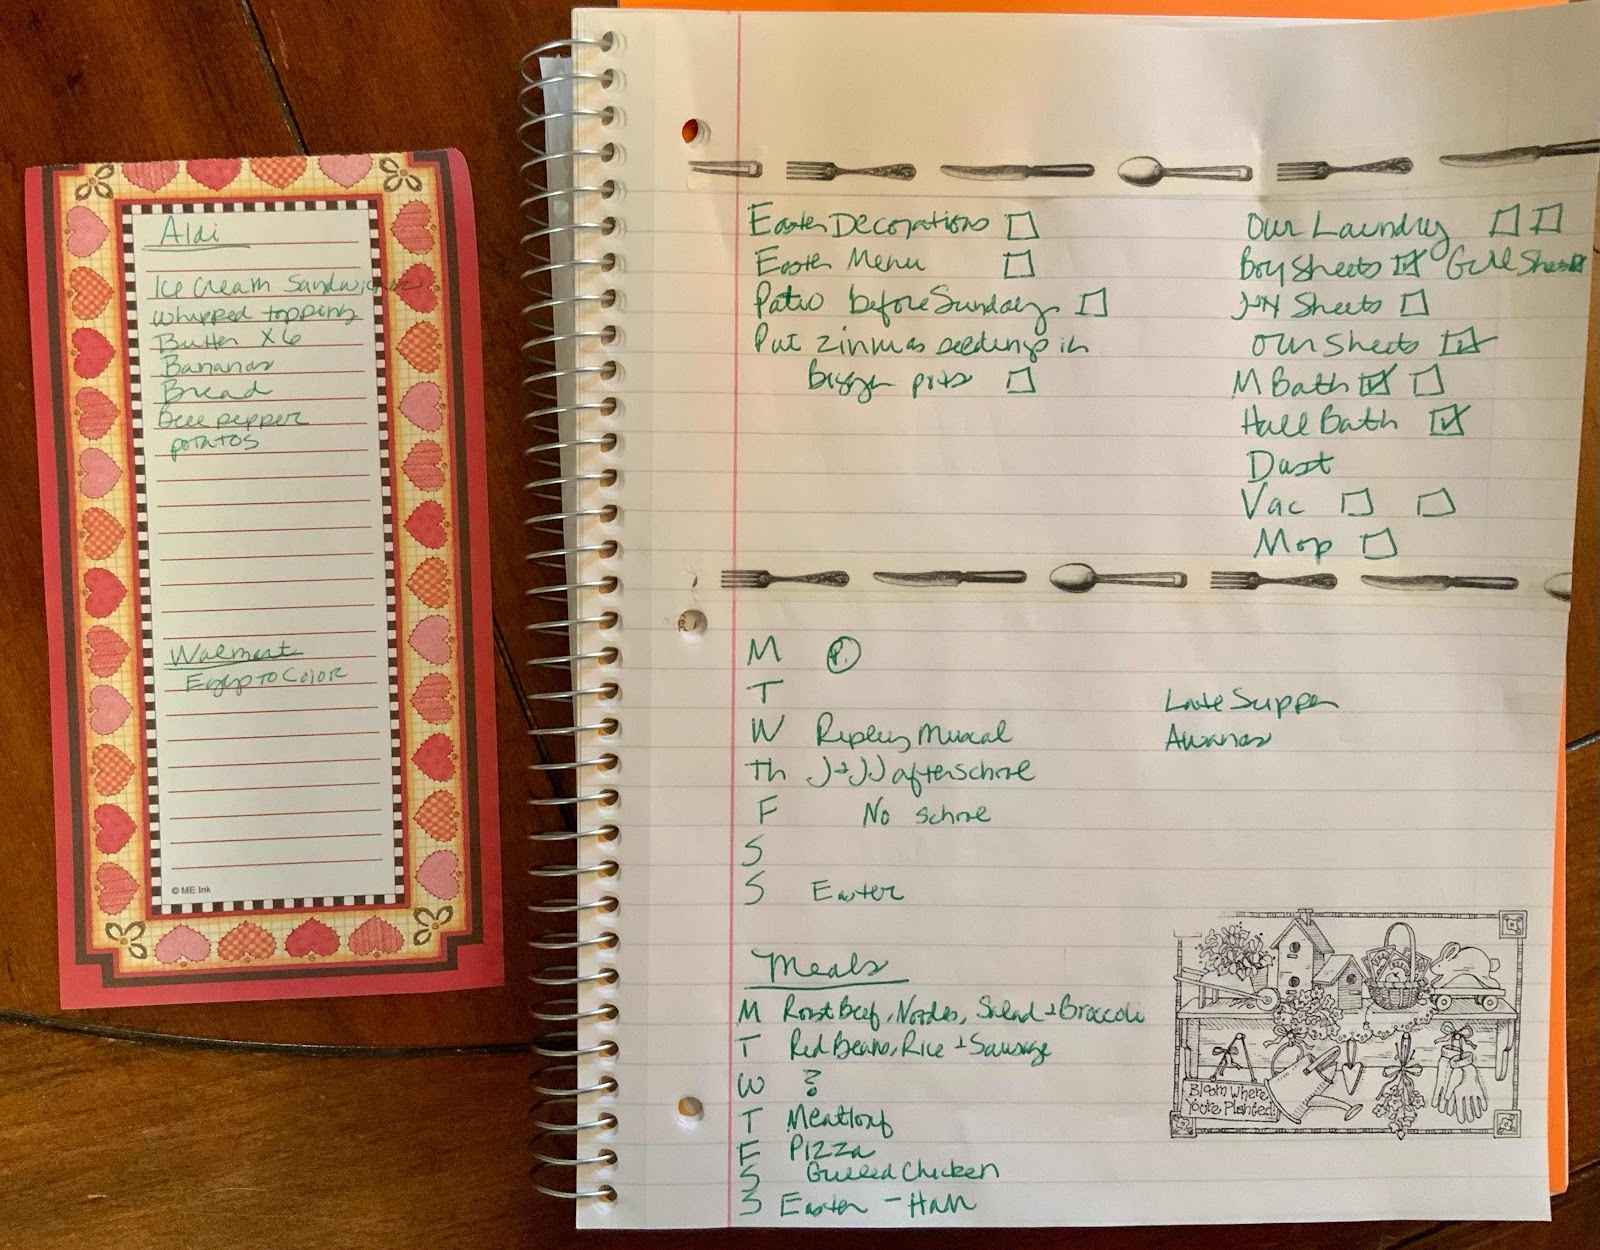 Aldi
Ice Cream Sandwiches
whipped topping
Butter x6
Bananas
Bread
Bell pepper
potatos
Walmart
Eggs to Color
© ME Ink
Easter Decorations
Easter Menu
Patio before Sunday
Put zinnias seedlings in
bigger pots
Our Laundry
Boy Sheets Girl Sheets
Sheets
Our Sheets
M Bath
Hall Bath
Dust
Vac
Mop
M P.
T Late Supper
W Ripley Musical Awanas
Th J+JJ afterschool
F No school
S
S Easter
Meals
M Roast Beef, Noodles, Salad + Broccoli
T Red Beans, Rice + Sausage
W ?
T Meatloaf
F Pizza
S Grilled Chicken
S Easter - Ham
Bloom Where
You're Planted!